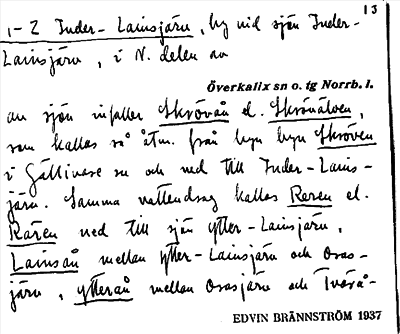 13
1-2 Inder-Lainsjärv, by vid sjön Inder-
Lainsjärv, i N. delen av
Överkalix sn o. tg Norrb. l.
au sjön infaller Skrövån el. Skrövälven,
som kallas så åtm. från byn Skröven
i Gällivare sn och ned till Inder-Lains-
järv. Samma vattendrag kallas Reren el.
Rären ned till sjön Ytter-Lainsjärv,
Lainsån mellan Ytter-Lainsjärv och Oras-
järv, Ytterån mellan Orasjärv och Tvärå-
EDVIN BRÄNNSTRÖM 1937